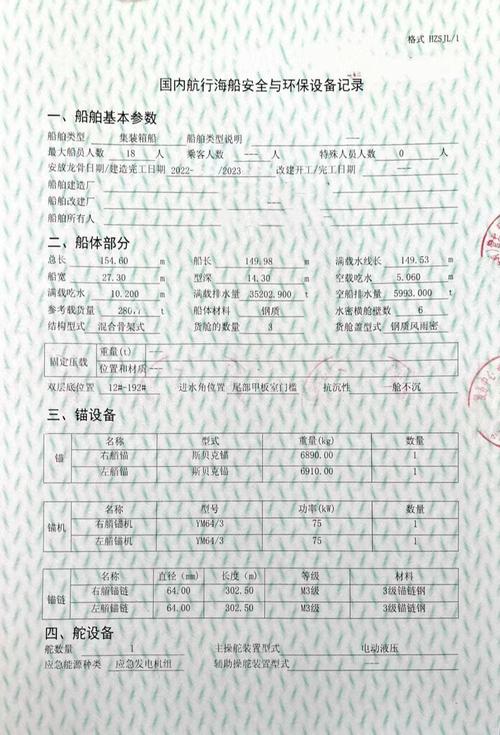 格式 HZSJL/1
国内航行海船安全与环保设备记录
一、船舶基本参数
船舶类型 集装箱船 船舶类型说明 ---
最大船员人数 18 人 乘客人数 --- 人 特殊人员人数 0 人
安放龙骨日期/建造完工日期 2022- /2023 改建开工/完工日期 ---
船舶建造厂
船舶改建厂
船舶所有人
二、船体部分
总长 154.60 m 船长 149.98 m 满载水线长 149.53 m
船宽 27.30 m 型深 14.30 m 空载吃水 5.060 m
满载吃水 10.200 m 满载排水量 35202.900 t 空船排水量 5993.000 t
参考载货量 280 t 船体材料 钢质 水密横舱壁数 6
结构型式 混合骨架式 货舱的数量 3 货舱盖型式 钢质风雨密
固定压载 重量(t) ---
位置和材质 ---
双层底位置 12#-192# 进水角位置 尾部甲板室门槛 抗沉性 一舱不沉
三、锚设备
锚 名称 型式 重量(kg) 数量
右艏锚 斯贝克锚 6890.00 1
左艏锚 斯贝克锚 6910.00 1
锚机 名称 型号 功率(kW) 数量
右艏锚机 YM64/3 75 1
左艏锚机 YM64/3 75 1
锚链 名称 直径(mm) 长度(m) 等级 材料
右艏锚链 64.00 302.50 M3级 3级锚链钢
左艏锚链 64.00 302.50 M3级 3级锚链钢
四、舵设备
舵数量 1 主操舵装置型式 电动液压
应急能源种类 应急发电机组 辅助操舵装置型式 ---